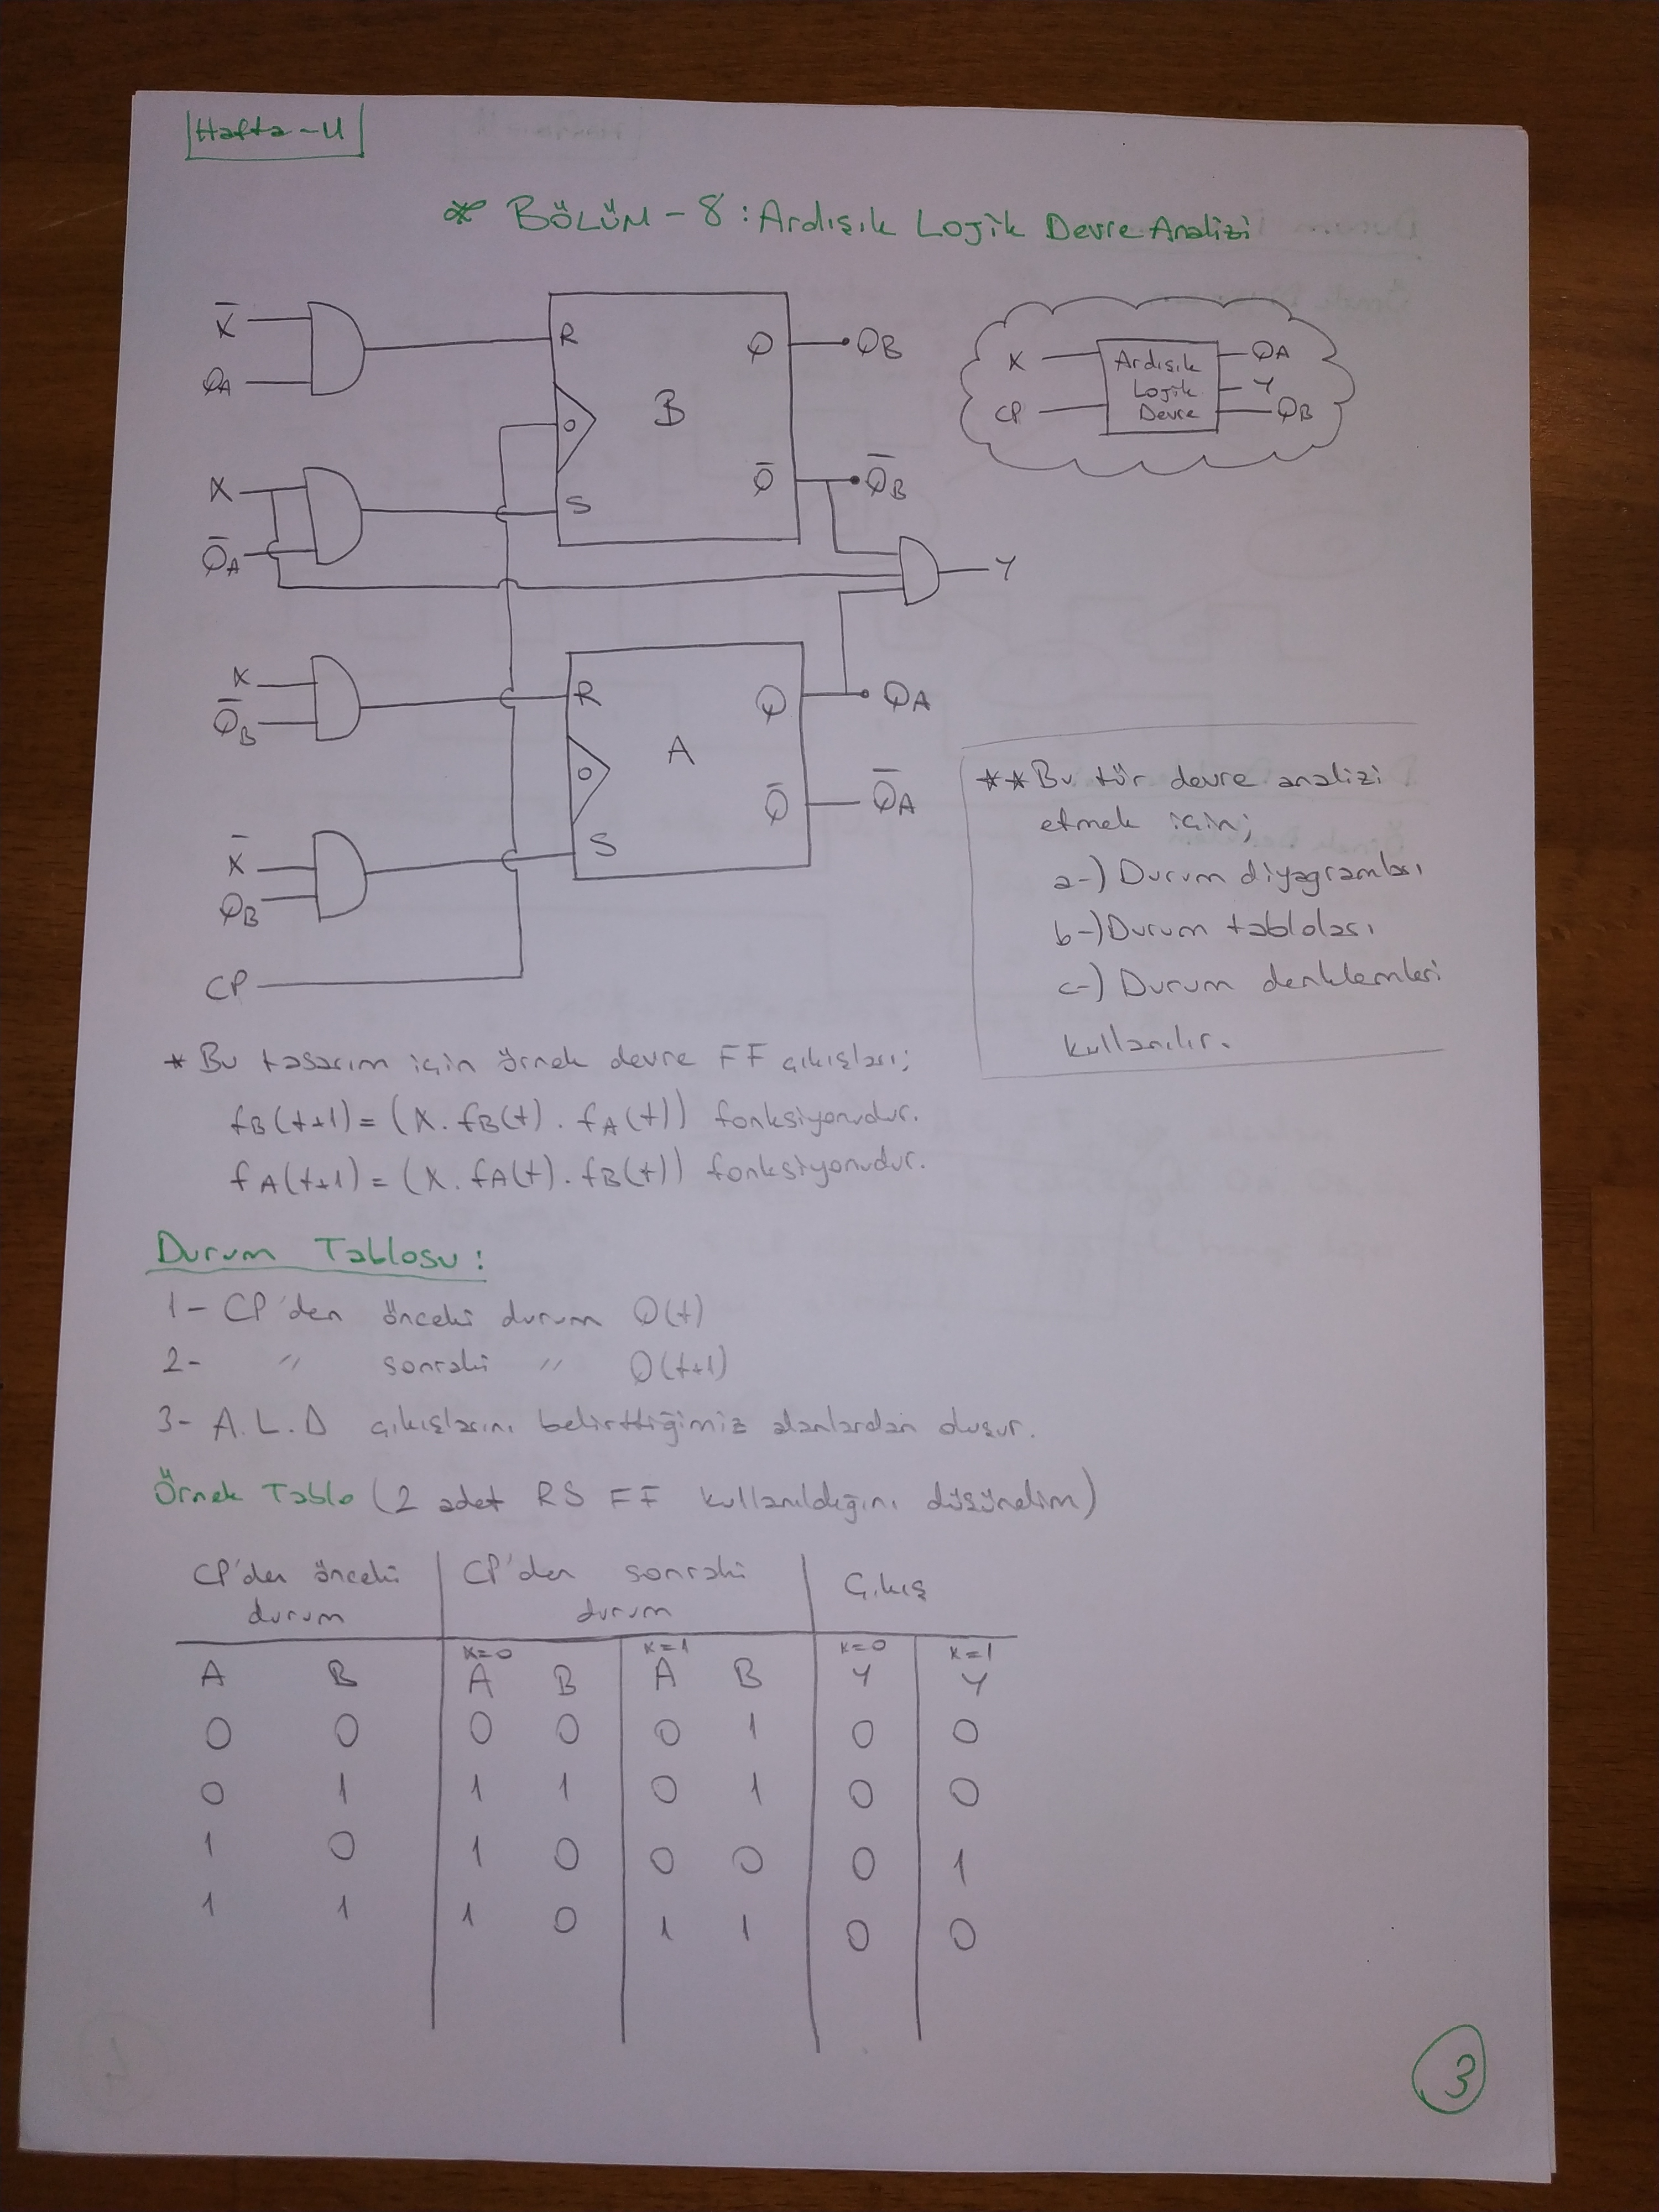 Hafta-4
* BÖLÜM-8: Ardışık Lojik Devre Analizi
X̅
QA
R
Q
QB
B
X
Q̅A
S
Q̅
Q̅B
X
CP
Ardışık
Lojik
Devre
QA
Y
QB
Y
X
Q̅B
R
Q
QA
A
X̅
QB
S
Q̅
Q̅A
CP
** Bu tür devre analizi
etmek için;
a-) Durum diyagramları
b-) Durum tabloları
c-) Durum denklemleri
kullanılır.
* Bu tasarım için örnek devre FF çıkışları;
fB(t+1) = (X. fB(t). fA(t)) fonksiyonudur.
fA(t+1) = (X. fA(t). fB(t)) fonksiyonudur.
Durum Tablosu:
1- CP'den önceki durum Q(t)
2- " sonraki " Q(t+1)
3- A.L.D çıkışlarını belirttiğimiz alanlardan oluşur.
Örnek Tablo (2 adet RS FF kullanıldığını düşünelim)
CP'den önceki durum | CP'den sonraki durum | Çıkış
x=0 x=1 x=0 x=1
A B A B A B Y Y
0 0 0 0 0 1 0 0
0 1 1 1 0 1 0 0
1 0 1 0 0 0 0 1
1 1 1 0 1 1 0 0
3